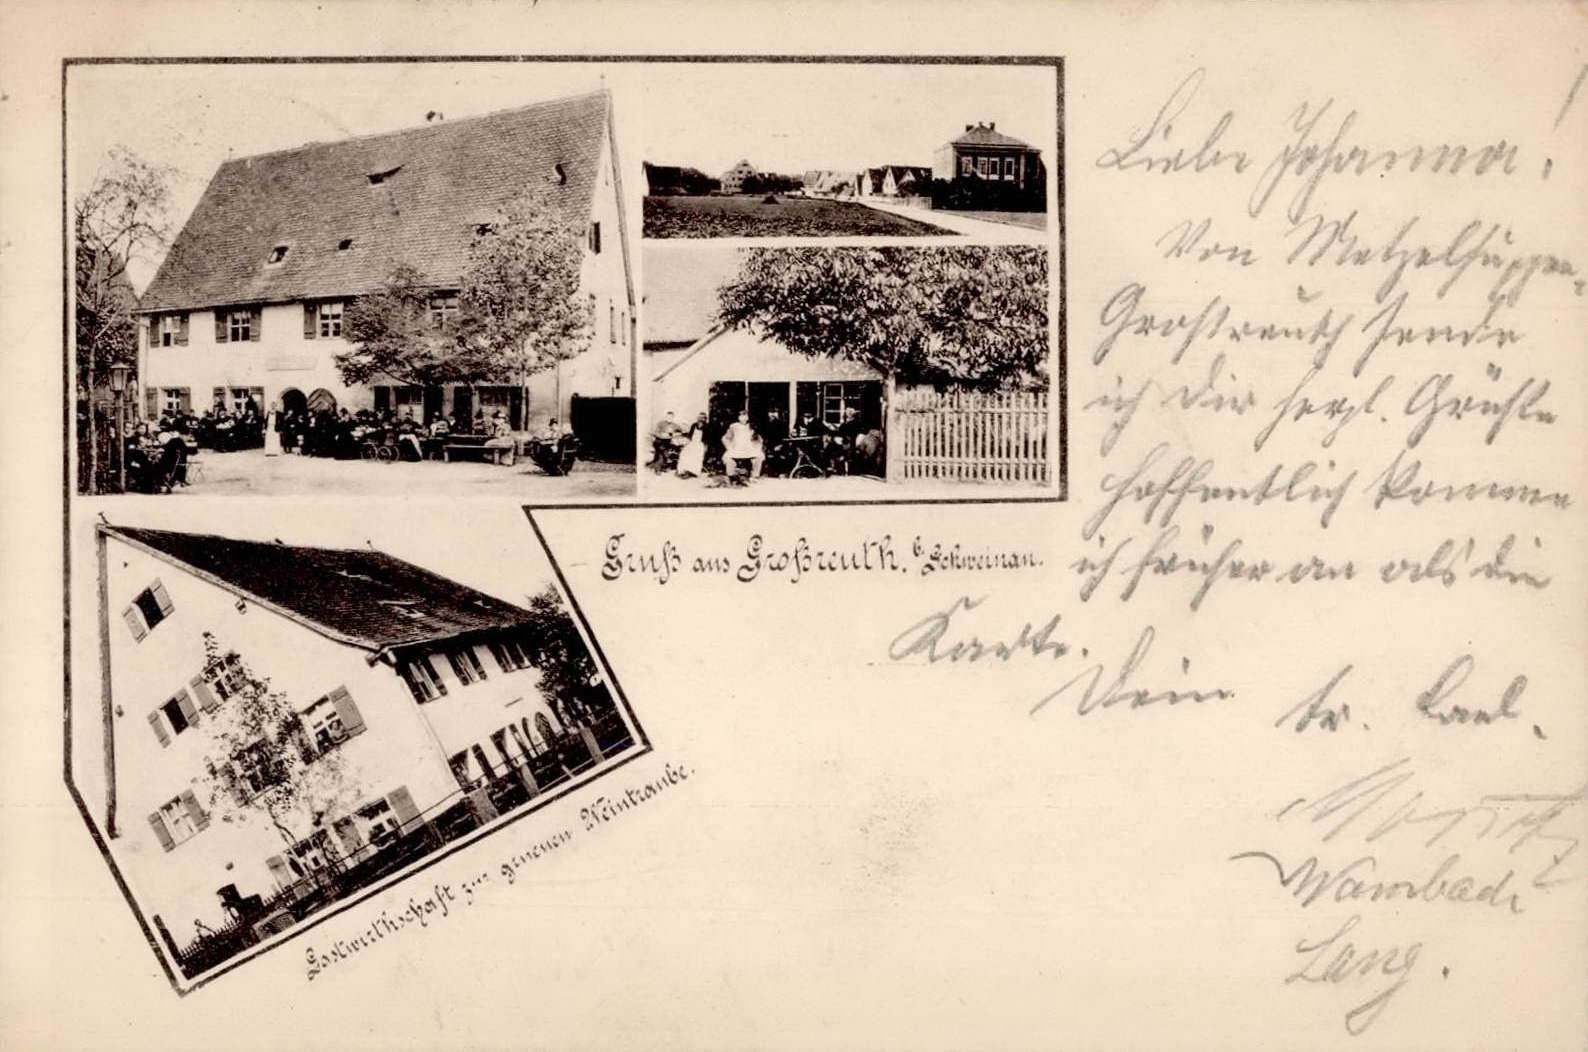 Gruß aus Großreuth. b. Schweinau.
Gastwirthschaft zur grünen Weintraube.
Liebe Johanna!
Von Metzelsuppen-
Großreuth sende
ich Dir herzl. Grüße
hoffentlich komme
ich früher an als die
Karte.
Dein tr. Karl.
Lang.